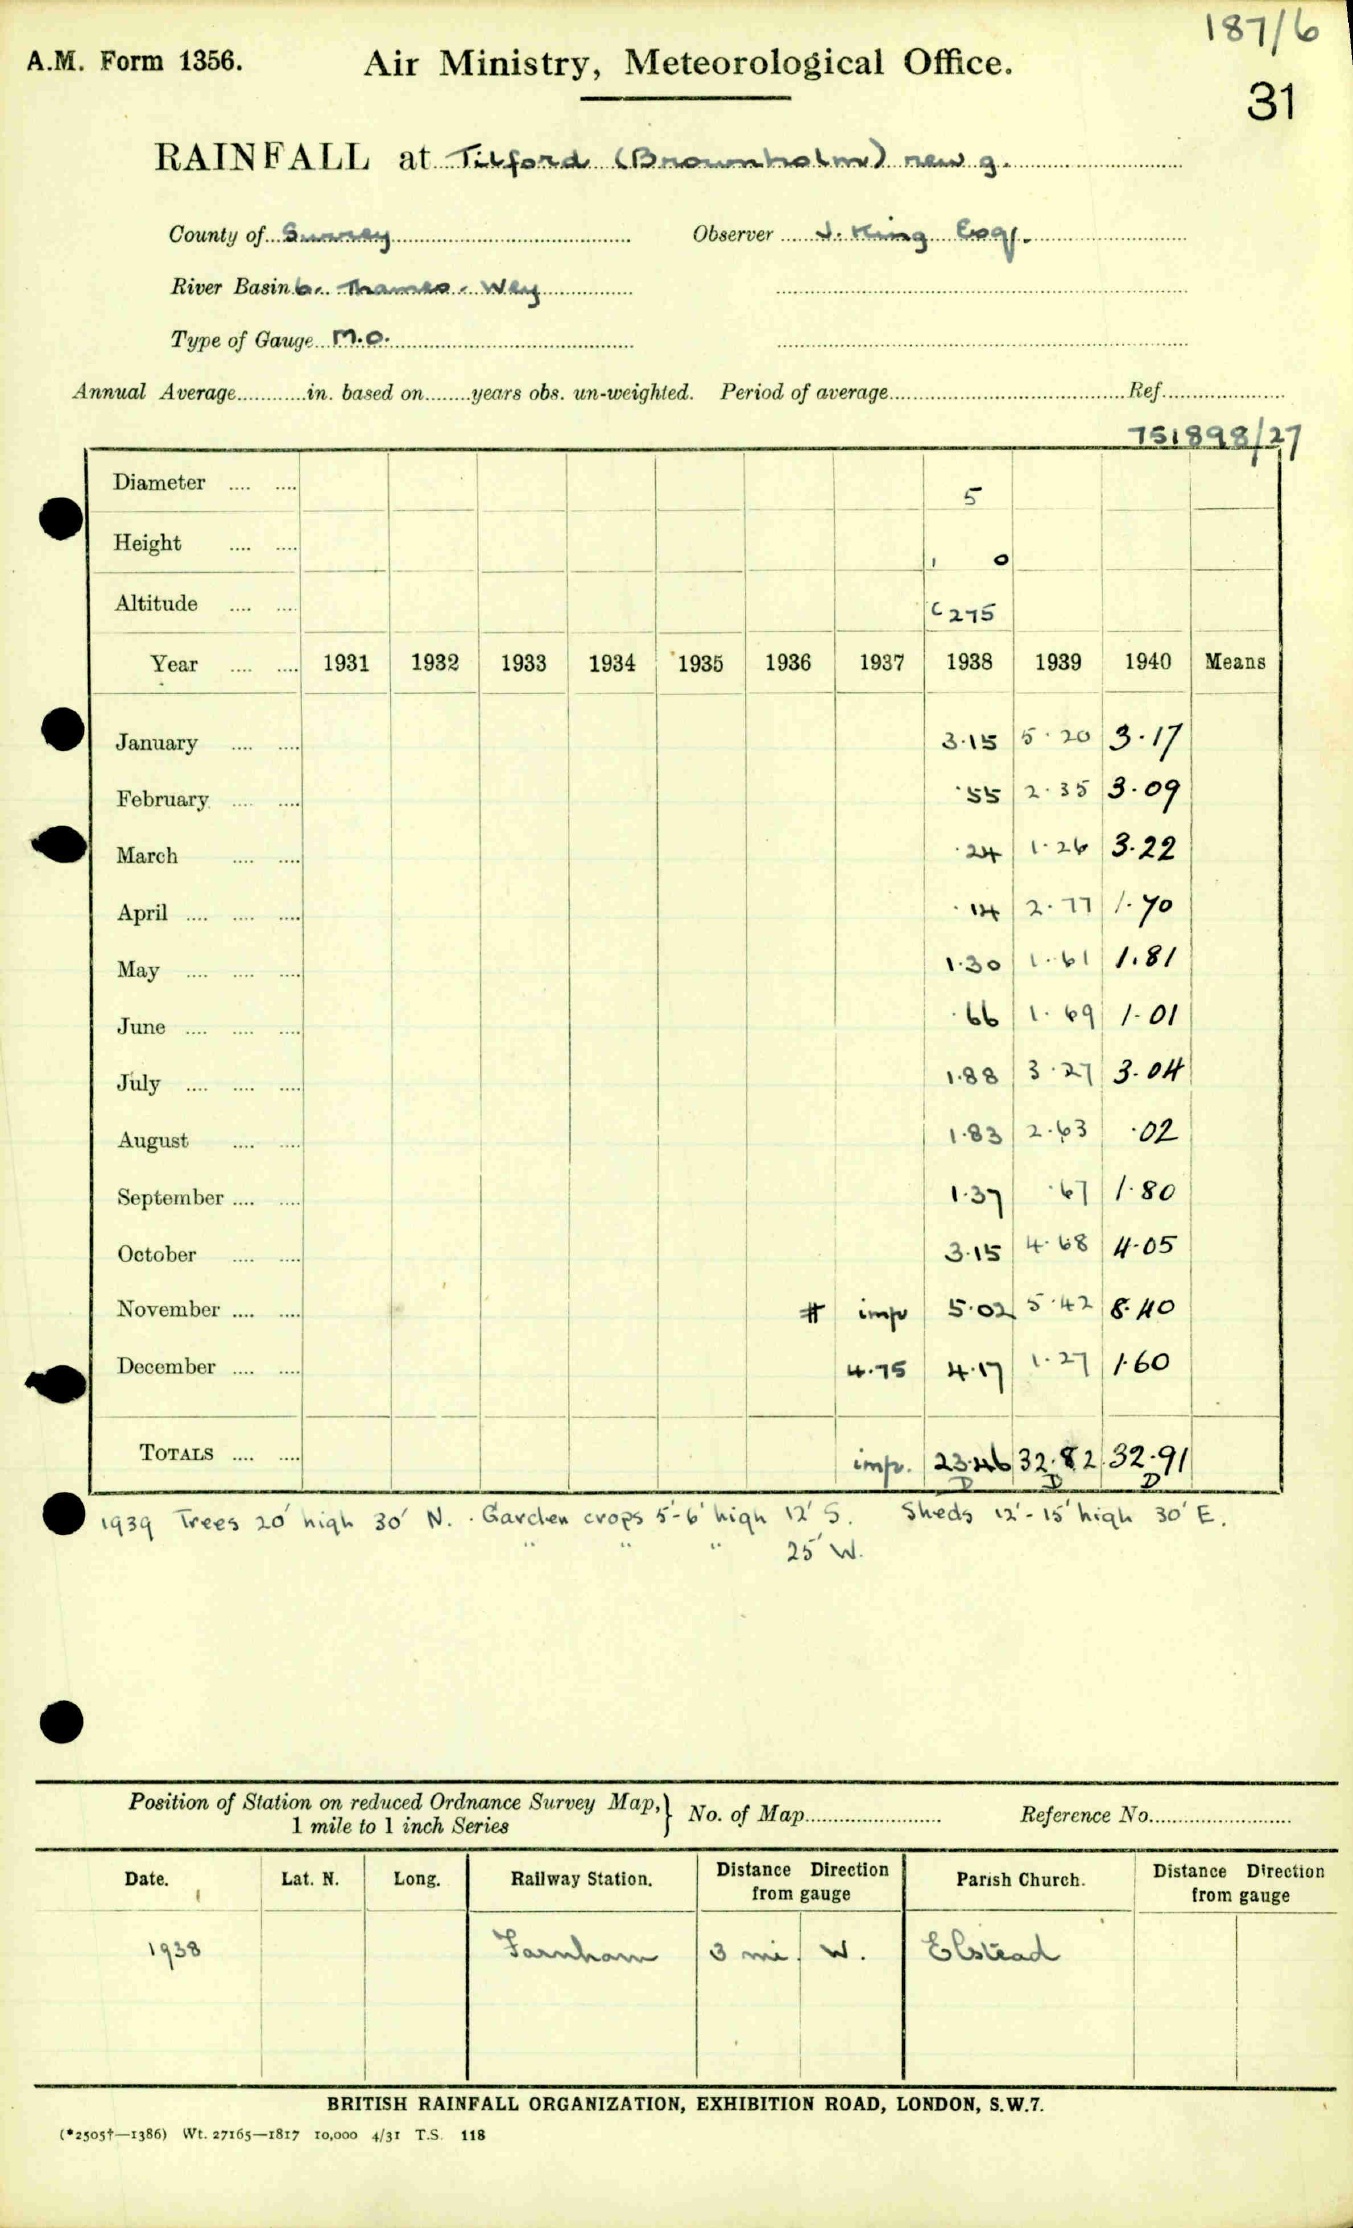 187/6
A.M. Form 1356. Air Ministry, Meteorological Office.
31
RAINFALL at Tilford (Brownholm) new g.
County of Surrey Observer J. King Esq.
River Basin 6. Thames - Wey
Type of Gauge M.O.
Annual Average............in. based on........years obs. un-weighted. Period of average.......................Ref...........
751898/27
Diameter .... .... 5
Height .... .... 1 0
Altitude .... .... c 275
Year .... .... 1931 1932 1933 1934 1935 1936 1937 1938 1939 1940 Means
January .... .... 3.15 5.20 3.17
February .... .... .55 2.35 3.09
March .... .... .24 1.26 3.22
April .... .... .... .14 2.77 1.70
May .... .... .... 1.30 1.61 1.81
June .... .... .... .66 1.69 1.01
July .... .... .... 1.88 3.27 3.04
August .... .... 1.83 2.63 .02
September .... .... 1.37 .67 1.80
October .... .... 3.15 4.68 4.05
November .... .... # imp 5.02 5.42 8.40
December .... .... 4.75 4.17 1.27 1.60
TOTALS .... .... imp. 23.46 32.82 32.91
D D D
1939 Trees 20' high 30' N. . Garden crops 5'-6' high 12' S. Sheds 12'-15' high 30' E.
" " " 25' W.
Position of Station on reduced Ordnance Survey Map,} No. of Map........................ Reference No.........................
1 mile to 1 inch Series
Date. Lat. N. Long. Railway Station. Distance Direction from gauge Parish Church. Distance Direction from gauge
1938 Farnham 3 mi. W. Elstead
BRITISH RAINFALL ORGANIZATION, EXHIBITION ROAD, LONDON, S.W.7.
(*2505†—1386) Wt. 27165—1817 10,000 4/31 T.S. 118